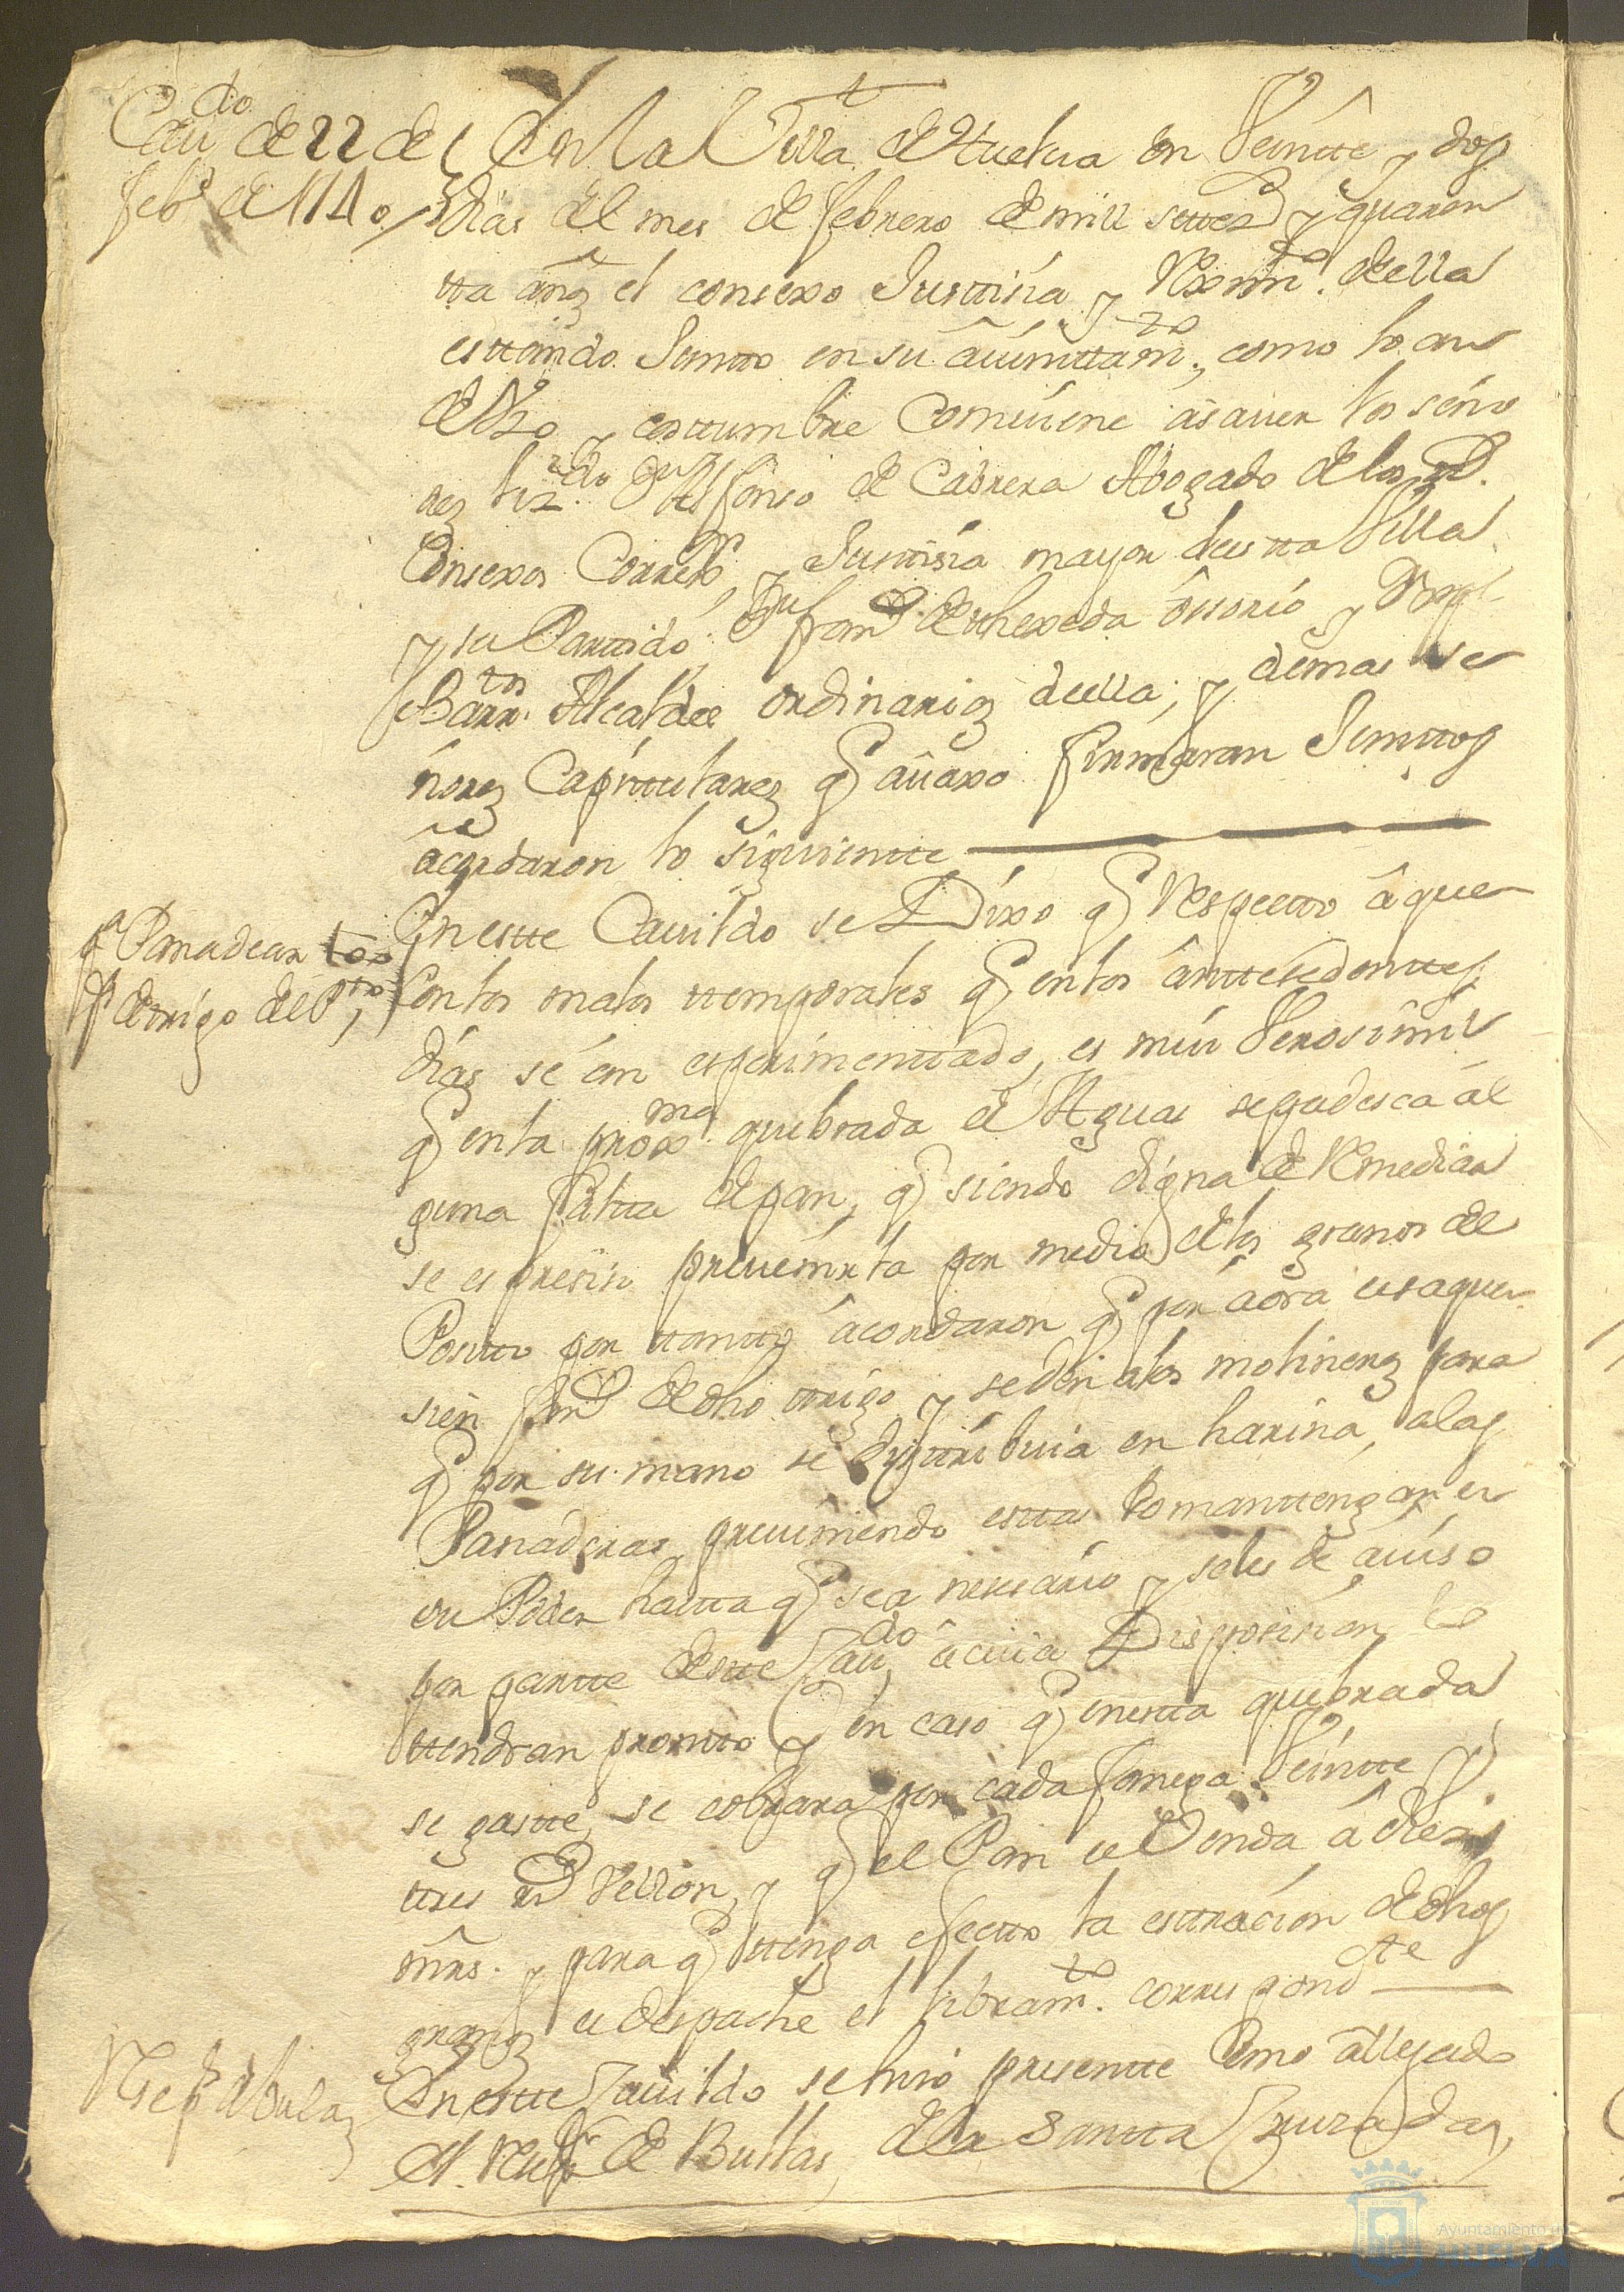 Cau.do de 22 de
feb.o de 1740
En la Villa de Huelua en Veintte y dos
dias del mes de febrero de mill settez.s y quaren
tta añs el consexo Justtisia y Reximto. della
esttando Juntto en su aiunttamto., como lo an
de Uso y costtumbre Comuiene asauer los seño
res liz.do Dn Alfonso de Cabrera Abogado de los R.s
Consexos Correxor, y Justtisia mayor desta Villa
y su Parttido; Dn fran.co de thexeda ossorio y
Barr.tos Alcaldes ordinarios della; y demas se
ñores Capittulares q auaxo firmaran Junttos
acordaron lo siguientte
q.a Panadear
trigo del P.tto
En estte Cauildo se Dixo q Respectto a que
Con los malos ttemporales q en los anttesedenttes
dias se an esperimenttado, es mui Verosimil
q en la prox.ma quebrada de Aguas se padesca al
guna faltta de pan, q siendo digna de Remediar
se es presiso preuenirla por medio de los granos del
Positto por tantto acordaron q por aora se saquen
sien fan.s de dho trigo y se den a los molineros para
q por su mano se disttribuia en harina, a las
Panaderas preuiniendo esttas lo manttengan en
su Poder hastta q sea nesesario y se les de auiso
por partte de estte Cau.do a cuia Disposision lo
ttendran prontto y en caso q en estta quebrada
se gastte, se cobrara por cada fanega Veintte y
ttres r.s Vellon, y q el Pan se Venda a diez
mrs. y para q ttenga efectto la esttracion de dhos
granos se despache el libramto. correspond.te
Resep.r de bulas
En estte Cauildo se hiso presentte Como a llegado
el Resep.r de Bullas de la Santta Cruzada,
Ayuntamiento de
HUELVA